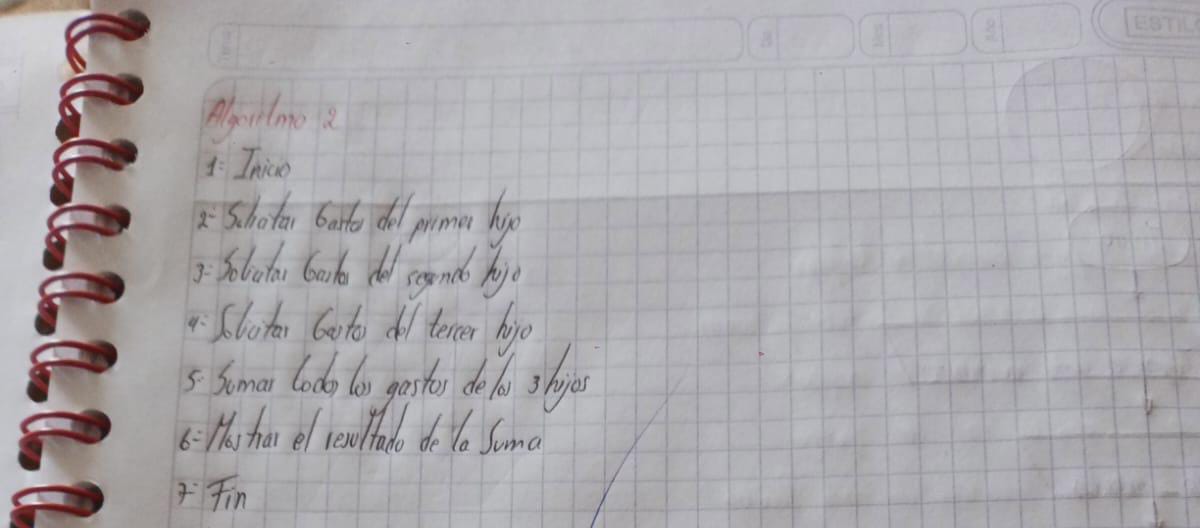 ESTILO
Algoritmo 2
1= Inicio
2= Solicitar Gastos del primer hijo
3= Solicitar Gastos del segundo hijo
4= Solicitar Gastos del tercer hijo
5= Sumar todos los gastos de los 3 hijos
6= Mostrar el resultado de la Suma
7= Fin